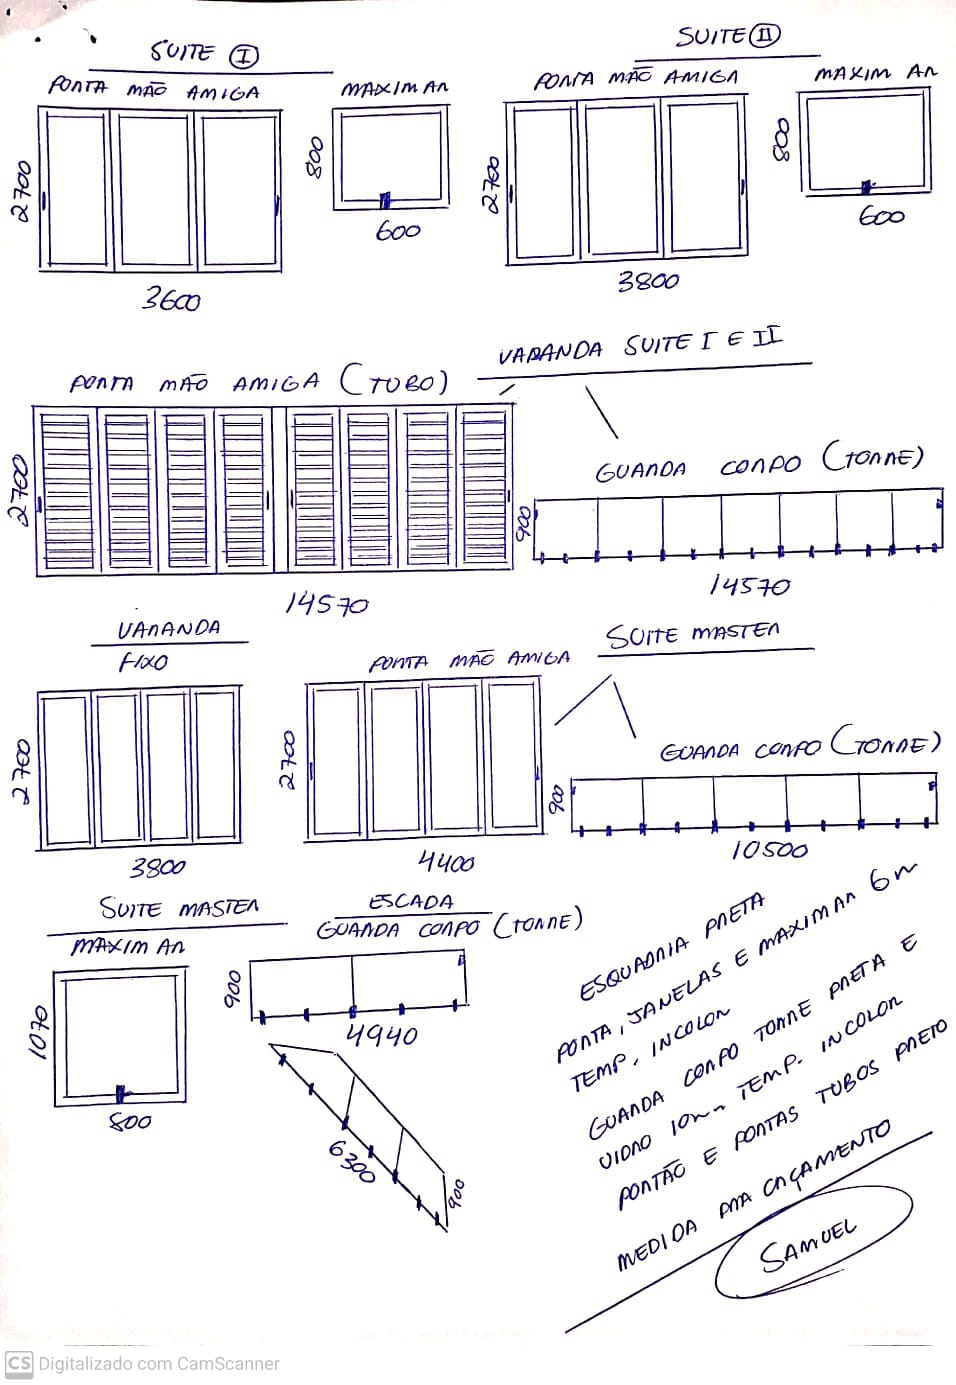 SUITE I
PORTA MÃO AMIGA
MAXIM AR
2700
800
3600
600
SUITE II
PORTA MÃO AMIGA
MAXIM AR
2700
800
3800
600
VARANDA SUITE I E II
PORTA MÃO AMIGA (TUBO)
2700
14570
GUARDA CORPO (TORRE)
900
14570
VARANDA
FIXO
2700
3800
SUITE MASTER
PORTA MÃO AMIGA
2700
4400
GUARDA CORPO (TORRE)
900
10500
SUITE MASTER
MAXIM AR
1070
800
ESCADA
GUARDA CORPO (TORRE)
900
4940
6300
900
ESQUADRIA PRETA
PORTA, JANELAS E MAXIMAR 6m
TEMP. INCOLOR
GUARDA CORPO TORRE PRETA E
VIDRO 10mm TEMP. INCOLOR
PORTÃO E PORTAS TUBOS PRETO
MEDIDA PRA ORÇAMENTO
SAMUEL
CS Digitalizado com CamScanner